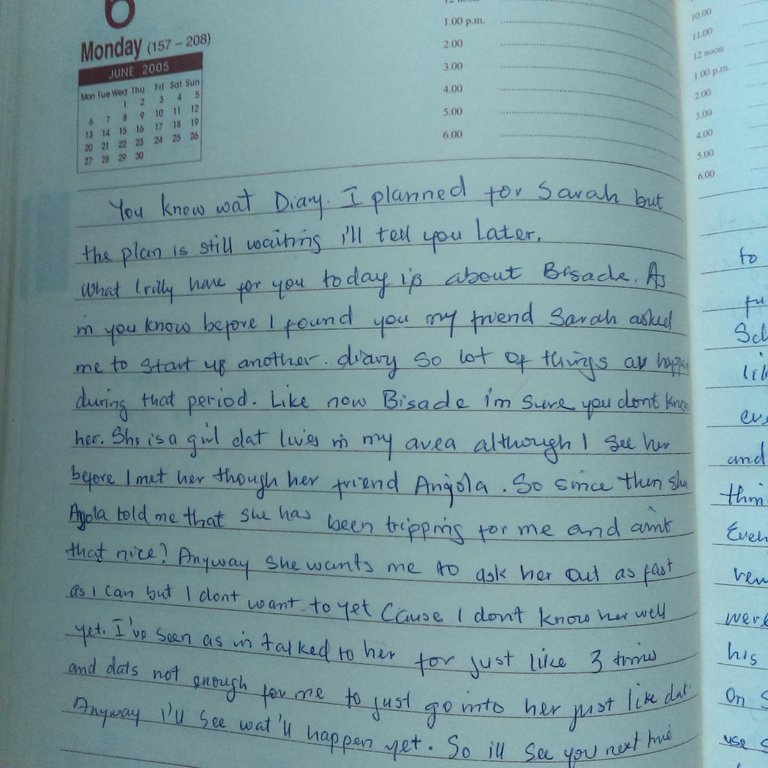 6
Monday (157 – 208)
JUNE 2005
Mon Tue Wed Thu Fri Sat Sun
1 2 3 4 5
6 7 8 9 10 11 12
13 14 15 16 17 18 19
20 21 22 23 24 25 26
27 28 29 30
1.00 p.m.
2.00
3.00
4.00
5.00
6.00
You know wat Diary. I planned for Sarah but
the plan is still waiting i'll tell you later.
What I rilly have for you today is about Bisade. As
in you know before I found you my friend Sarah asked
me to start up another diary so lot of things av
during that period. Like now Bisade i'm sure you dont know
her. She is a girl dat lives in my area although I see her
before I met her though her friend Angola. So since then she
Agola told me that she has been tripping for me and aint
that nice? Anyway she wants me to ask her out as fast
as i can but I dont want to yet Cause I dont know her well
yet. I've seen as in talked to her for just like 3 times
and dats not enough for me to just go into her just like dat.
Anyway i'll see wat'll happen yet. So ill see you next time
10.00
11.00
12 noon
1.00 p.m.
2.00
3.00
4.00
5.00
6.00
to
and
his
on
use